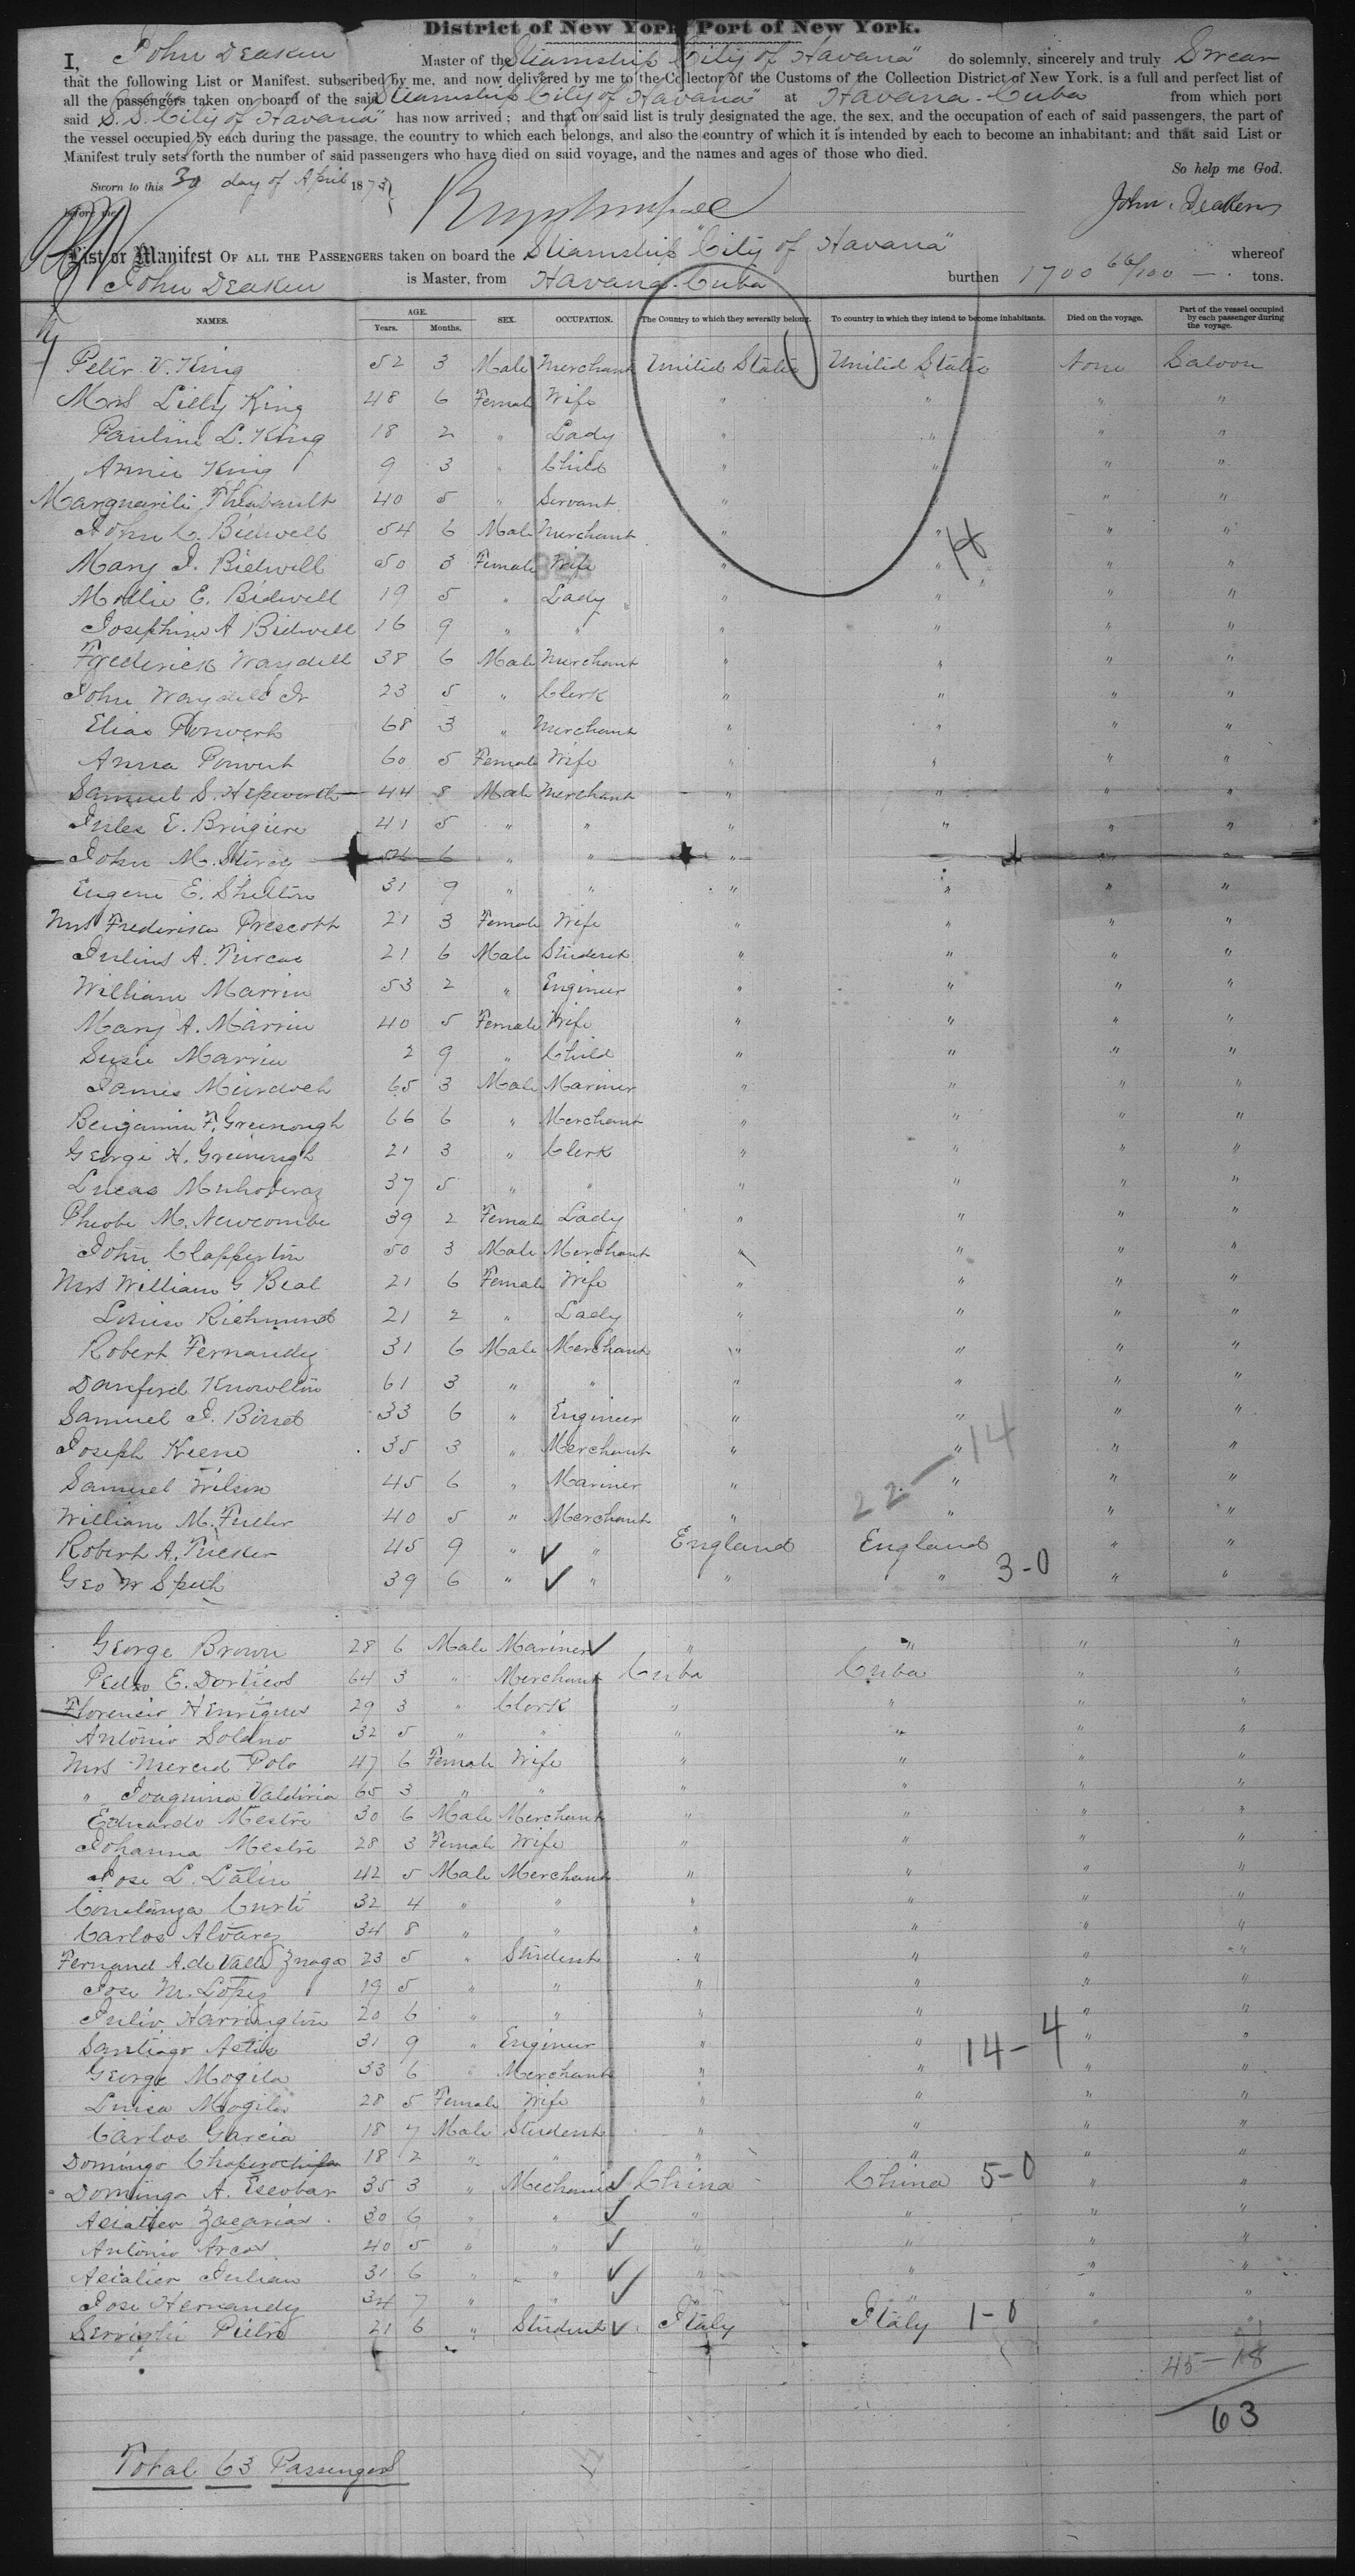 District of New York, Port of New York.
I, John Deaken Master of the Steamship "City of Havana" do solemnly, sincerely and truly Swear
that the following List or Manifest, subscribed by me, and now delivered by me to the Collector of the Customs of the Collection District of New York, is a full and perfect list of
all the passengers taken on board of the said Steamship "City of Havana" at Havana. Cuba from which port
said S.S. "City of Havana" has now arrived; and that on said list is truly designated the age, the sex, and the occupation of each of said passengers, the part of
the vessel occupied by each during the passage, the country to which each belongs, and also the country of which it is intended by each to become an inhabitant; and that said List or
Manifest truly sets forth the number of said passengers who have died on said voyage, and the names and ages of those who died.
So help me God.
Sworn to this 30 day of April 1873
before me John. Deaken
List or Manifest OF ALL THE PASSENGERS taken on board the Steamship "City of Havana" whereof
John Deaken is Master, from Havana. Cuba burthen 1700 66/100 tons.
NAMES. AGE. Years. Months. SEX. OCCUPATION. The Country to which they severally belong. To country in which they intend to become inhabitants. Died on the voyage. Part of the vessel occupied by each passenger during the voyage.
Peter V. King 52 3 Male Merchant United States United States None Saloon
Mrs Lilly King 48 6 Female Wife " " " "
Pauline L. King 18 2 " Lady " " " "
Annie King 9 3 " Child " " " "
Marguarite 40 5 " Servant " " " "
John C. Bidwell 54 6 Male Merchant " " " "
Mary J. Bidwell 50 3 Female Wife " " " "
Mollie E. Bidwell 19 5 " Lady " " " "
Josephine A Bidwell 16 9 " " " " " "
Frederick Waydell 38 6 Male Merchant " " " "
John Waydell Jr 23 5 " Clerk " " " "
Elias Ponvert 68 3 " Merchant " " " "
Anna Ponvert 60 5 Female Wife " " " "
Samuel S. Hepworth 44 8 Male Merchant " " " "
Jules E. Brugiere 41 5 " " " " " "
John M. 6 " " "
Eugene E. Shelton 31 9 " " " " " "
Mrs Frederika Prescott 21 3 Female Wife " " " "
Julius A. 21 6 Male Student " " " "
William Marrin 53 2 " Engineer " " " "
Mary A. Marrin 40 5 Female Wife " " " "
Susie Marrin 2 9 " Child " " " "
James Murdoch 65 3 Male Mariner " " " "
Benjamin F. Greenough 66 6 " Merchant " " " "
George H. Greenough 21 3 " Clerk " " " "
Lucas 37 5 " " " " " "
Pheobe M. Newcombe 39 2 Female Lady " " " "
John Clapperton 50 3 Male Merchant " " " "
Mrs William G Beal 21 6 Female Wife " " " "
Louise Richmond 21 2 " Lady " " " "
Robert Fernandez 31 6 Male Merchant " " " "
Danford Knowlton 61 3 " " " " " "
Samuel J. 33 6 " Engineer " " " "
Joseph Keene 35 3 " Merchant " " " "
Samuel Wilson 45 6 " Mariner " " " "
22-14
William M. Fuller 40 5 " Merchant " " " "
Robert A. Tucker 45 9 " " England England " "
Geo W Speth 39 6 " " " " 3-0 " "
George Brown 28 6 Male Mariner " " " "
Pedro E. Dorticos 64 3 " Merchant Cuba Cuba " "
Florencio Henriques 29 3 " Clerk " " " "
Antonio Solano 32 5 " " " " " "
Mrs Merced Polo 47 6 Female Wife " " " "
" Joaquina Valdivia 65 3 " " " " " "
Eduardo Mestre 30 6 Male Merchant " " " "
Johanna Mestre 28 3 Female Wife " " " "
Jose L. 42 5 Male Merchant " " " "
Constanza Curti 32 4 " " " " " "
Carlos Alvarez 34 8 " " " " " "
Fernand A. de Valle 23 5 " Student " " " "
Jose M. Lopez 19 5 " " " " " "
Julio Harrington 20 6 " " " " " "
Santiago 31 9 " Engineer " " 14-4 " "
George Mogila 33 6 " Merchant " " " "
Luisa Mogila 28 5 Female Wife " " " "
Carlos Garcia 18 7 Male Student " " " "
Domingo 18 2 " " " " " "
Domingo A. Escobar 35 3 " Mechanic China China 5-0 " "
Zacarias 30 6 " " " " " "
Antonio Arcas 40 5 " " " " " "
Julian 31 6 " " " " " "
Jose Hernandez 34 7 " " " " " "
Pietro 21 6 " Student Italy Italy 1-0 " "
45-18
63
Total 63 Passengers